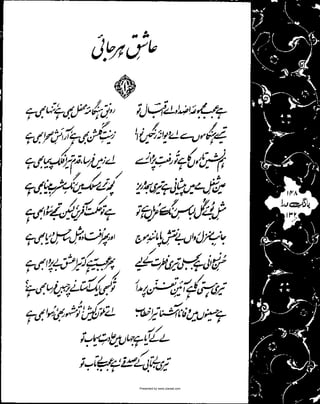 عاشقِ ہرجائی
ہے عجب مجموعۂ اضداد اے اقبال تو رونقِ ہنگامۂ محفل بھی ہے، تنہا بھی ہے
تیرے ہنگاموں سے اے دیوانۂ رنگیں نوا! زینتِ گلشن بھی ہے، آرائشِ صحرا بھی ہے
ہم نشیں تاروں کا ہے تو رفعتِ پرواز سے اے زمیں فرسا، قدم تیرا فلک پیما بھی ہے
عینِ شغلِ مے میں پیشانی ہے تیری سجدہ ریز کچھ ترے مسلک میں رنگِ مشربِ مینا بھی ہے
مثلِ بوئے گل لباسِ رنگ سے عریاں ہے تو ہے تو حکمت آفریں، لیکن تجھے سودا بھی ہے
جانبِ منزل رواں بے نقشِ پا مانندِ موج اور پھر افتادہ مثلِ ساحلِ دریا بھی ہے
حسنِ نسوانی ہے بجلی تیری فطرت کے لیے پھر عجب یہ ہے کہ تیرا عشق بے پروا بھی ہے
تیری ہستی کا ہے آئینِ تفنن پر مدار تو کبھی ایک آستانے پر جبیں فرسا بھی ہے؟
ہے حسینوں میں وفا نا آشنا تیرا خطاب اے تلون کیش! تو مشہور بھی، رسوا بھی ہے
لے کے آیا ہے جہاں میں عادتِ سیماب تو
تیری بے تابی کے صدقے، ہے عجب بے تاب تو
۱۳۸
بانگِ درا
۱۳۲